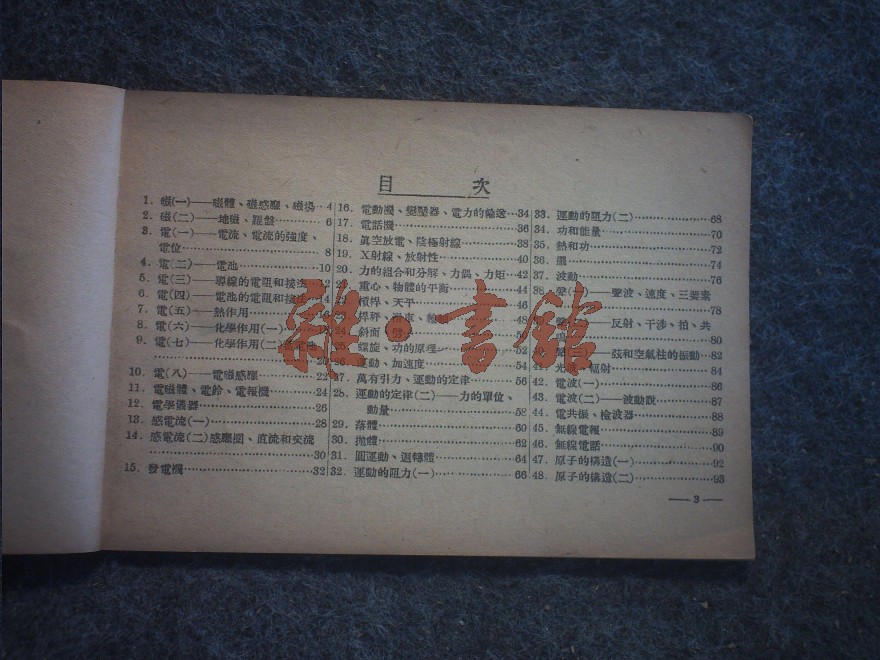 目　次
1. 磁(一)——磁體、磁感應、磁場 4
2. 磁(二)——地磁、羅盤 6
3. 電(一)——電流、電流的強度、
電位 8
4. 電(二)——電池 10
5. 電(三)——導線的電阻和接法 12
6. 電(四)——電池的電阻和接法 14
7. 電(五)——熱作用
8. 電(六)——化學作用(一)
9. 電(七)——化學作用(二)
20
10. 電(八)——電磁感應 22
11. 電磁體、電鈴、電報機 24
12. 電學儀器 26
13. 感電流(一) 28
14. 感電流(二)感應圈、直流和交流
30
15. 發電機 32
16. 電動機、變壓器、電力的輸送 34
17. 電話機 36
18. 眞空放電、陰極射線 38
19. X射線、放射性 40
20. 力的組合和分解、力偶、力矩 42
重心、物體的平衡 44
槓桿、天平
桿秤、
斜面、劈
螺旋、功的原理
運動、加速度 54
27. 萬有引力、運動的定律 56
28. 運動的定律(二)——力的單位、
動量 58
29. 落體 60
30. 拋體 62
31. 圓運動、迴轉體 64
32. 運動的阻力(一) 66
33. 運動的阻力(二) 68
34. 功和能量 70
35. 熱和功 72
36. 74
37. 波動 76
38. 聲(一)——聲波、速度、三要素
78
——反射、干涉、拍、共
80
——弦和空氣柱的振動 82
輻射 84
42. 電波(一) 86
43. 電波(二)——波動說 87
44. 電共振、檢波器 88
45. 無線電報 89
46. 無線電話 90
47. 原子的構造(一) 92
48. 原子的構造(二) 93
—— 3 ——
雜·書館